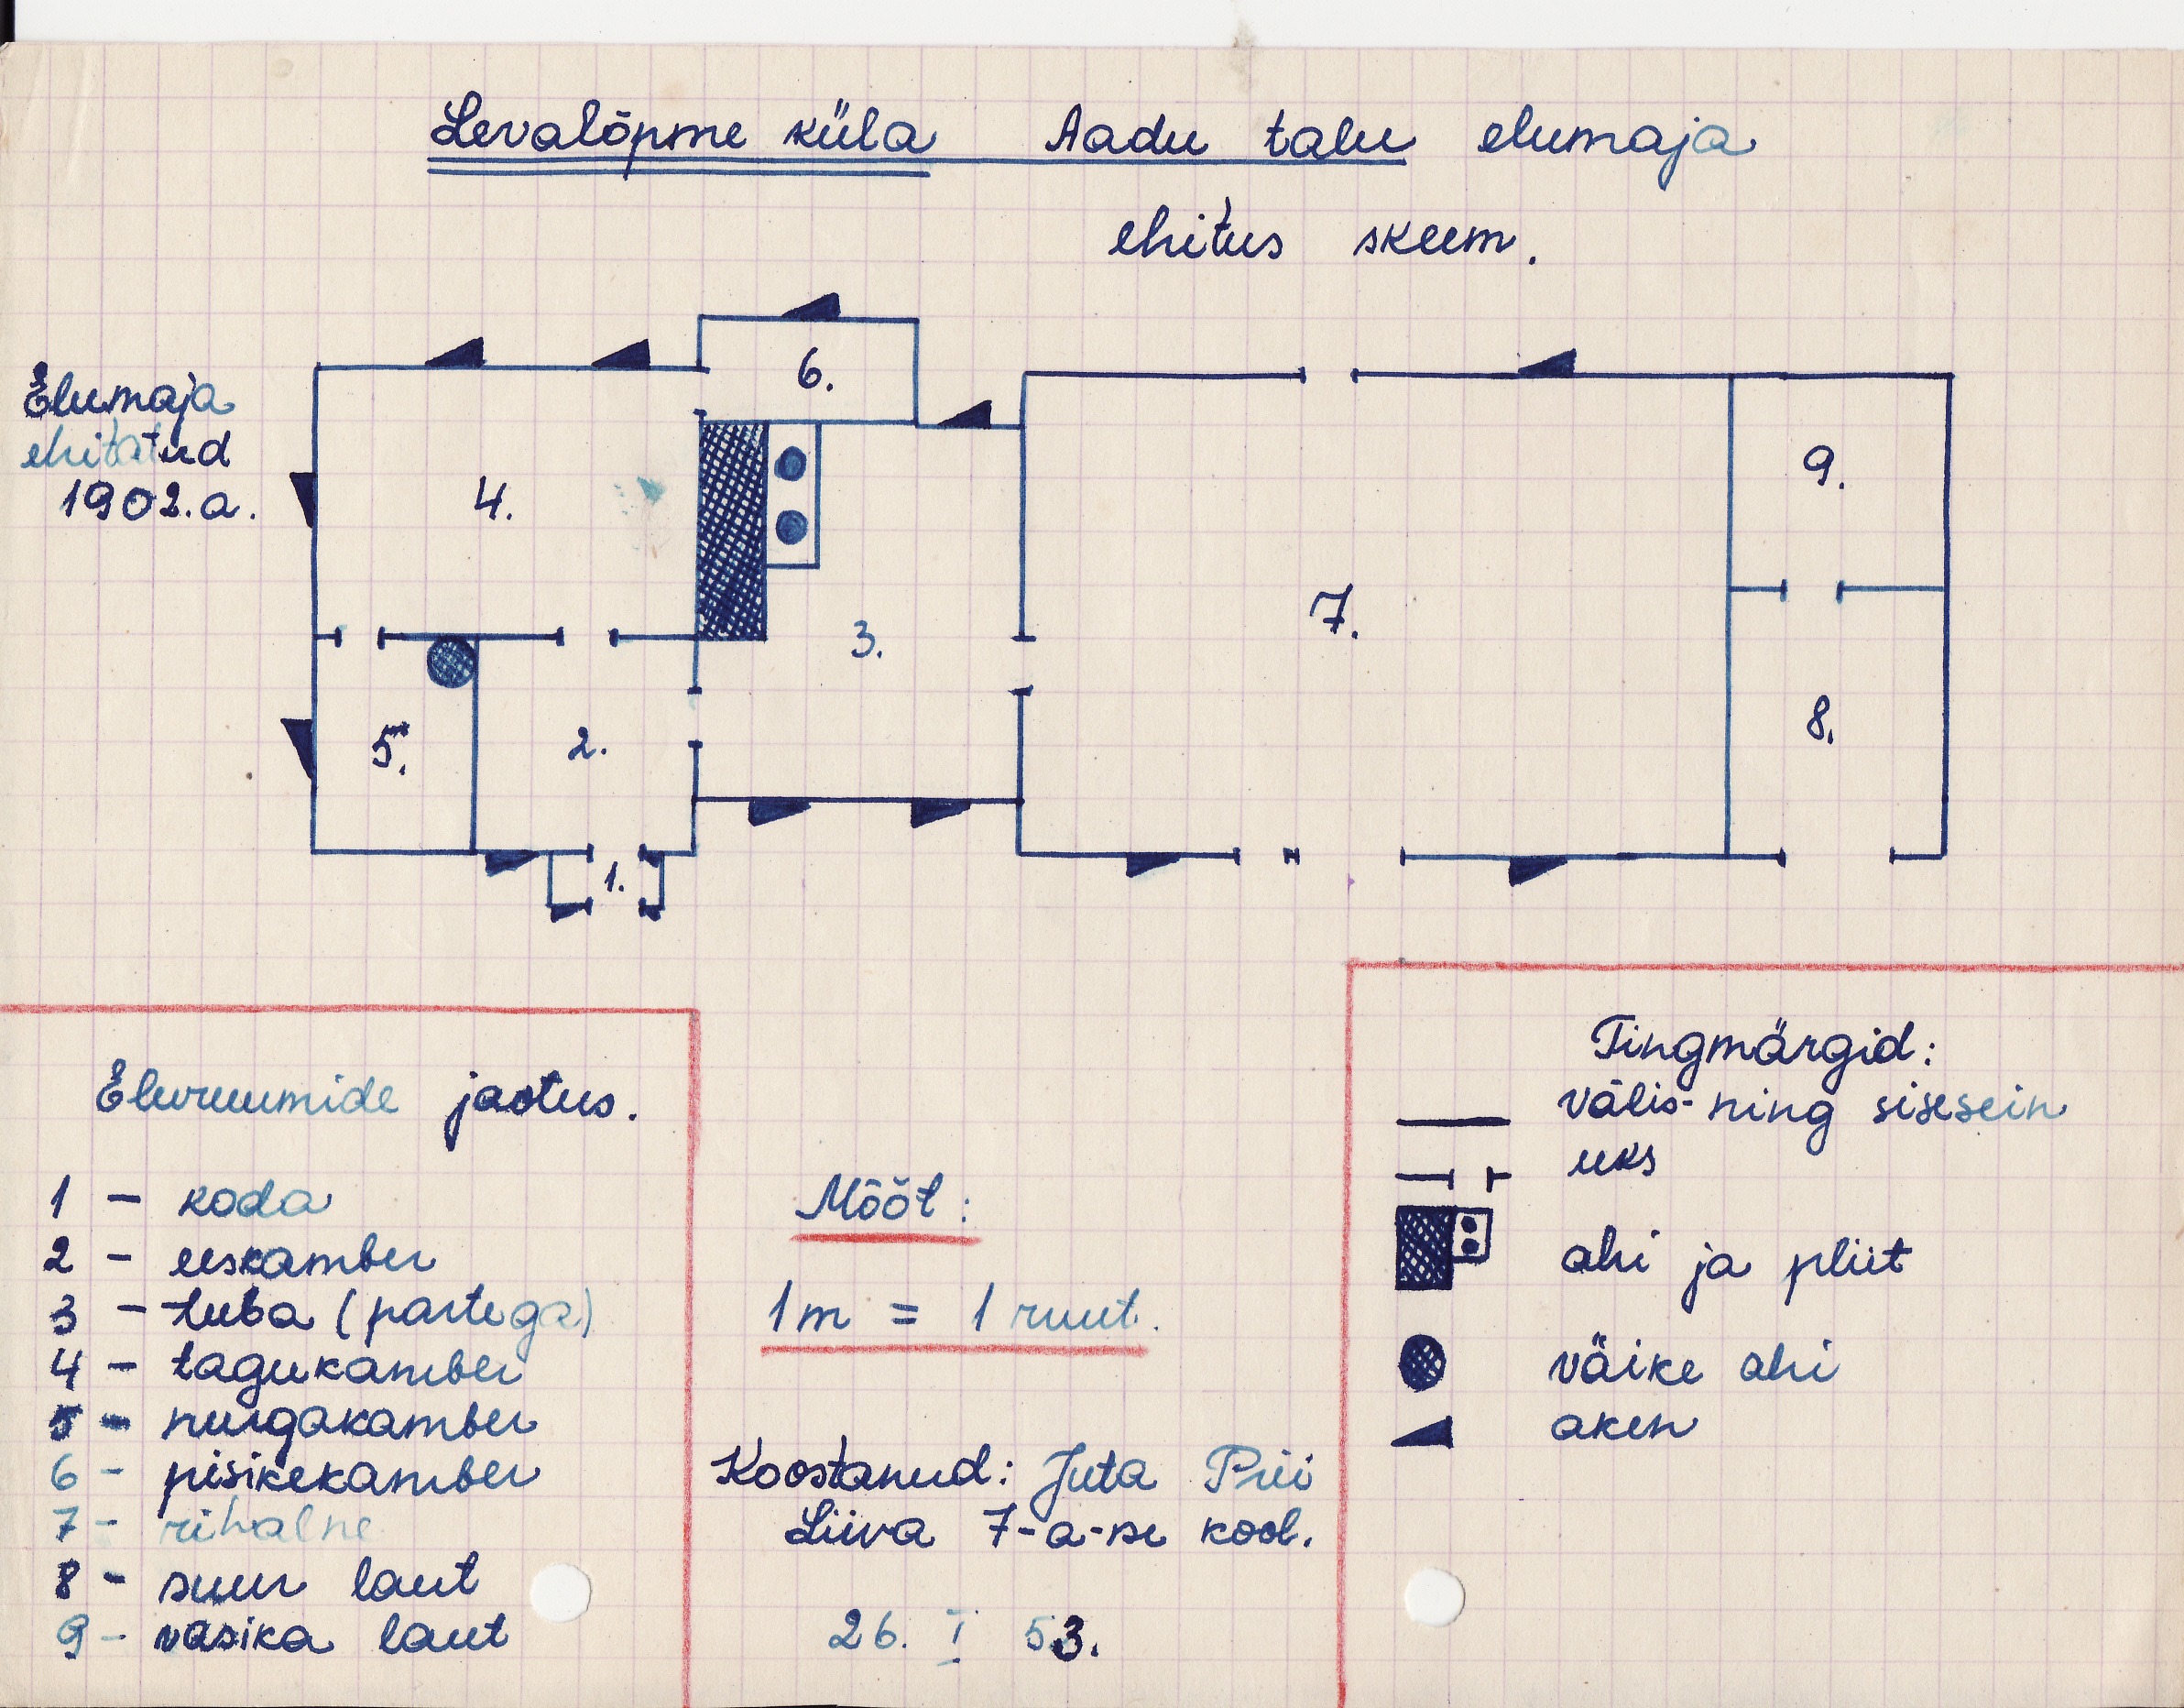 Levalõpme küla Aadu talu elumaja
ehitus skeem.
Elumaja
ehitatud
1902.a.
6.
4.
9.
7.
3.
5.
2.
8.
1.
Eluruumide jaotus.
1 - koda
2 - eeskamber
3 - tuba (partega)
4 - tagukamber
5 - nurgakamber
6 - pisikekamber
7 - rihalne
8 - suur laut
9 - vasika laut
Mõõt:
1m = 1 ruut.
Koostanud: Juta Prii
Liiva 7-a-se kool.
26. I 53.
Tingmärgid:
välis- ning sisesein
uks
ahi ja pliit
väike ahi
aken